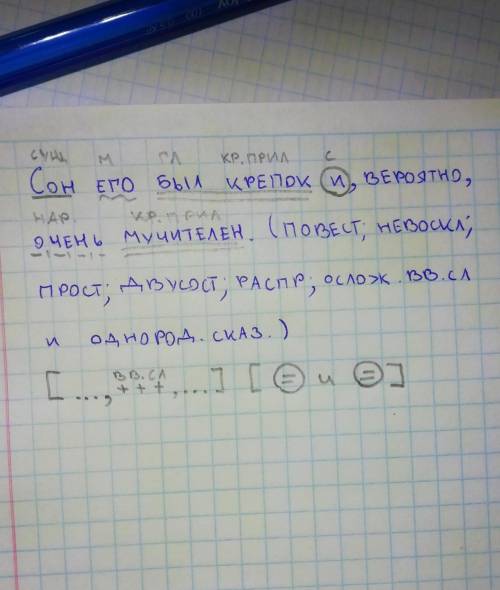 сущ. м гл кр.прил с
Сон его был крепок и, вероятно,
нар. кр.прил
очень мучителен. (повест; невоскл;
прост; двусост; распр; осложн. вв.сл
и однород. сказ.)
вв.сл
[ ..., +++, ...] [ = и = ]